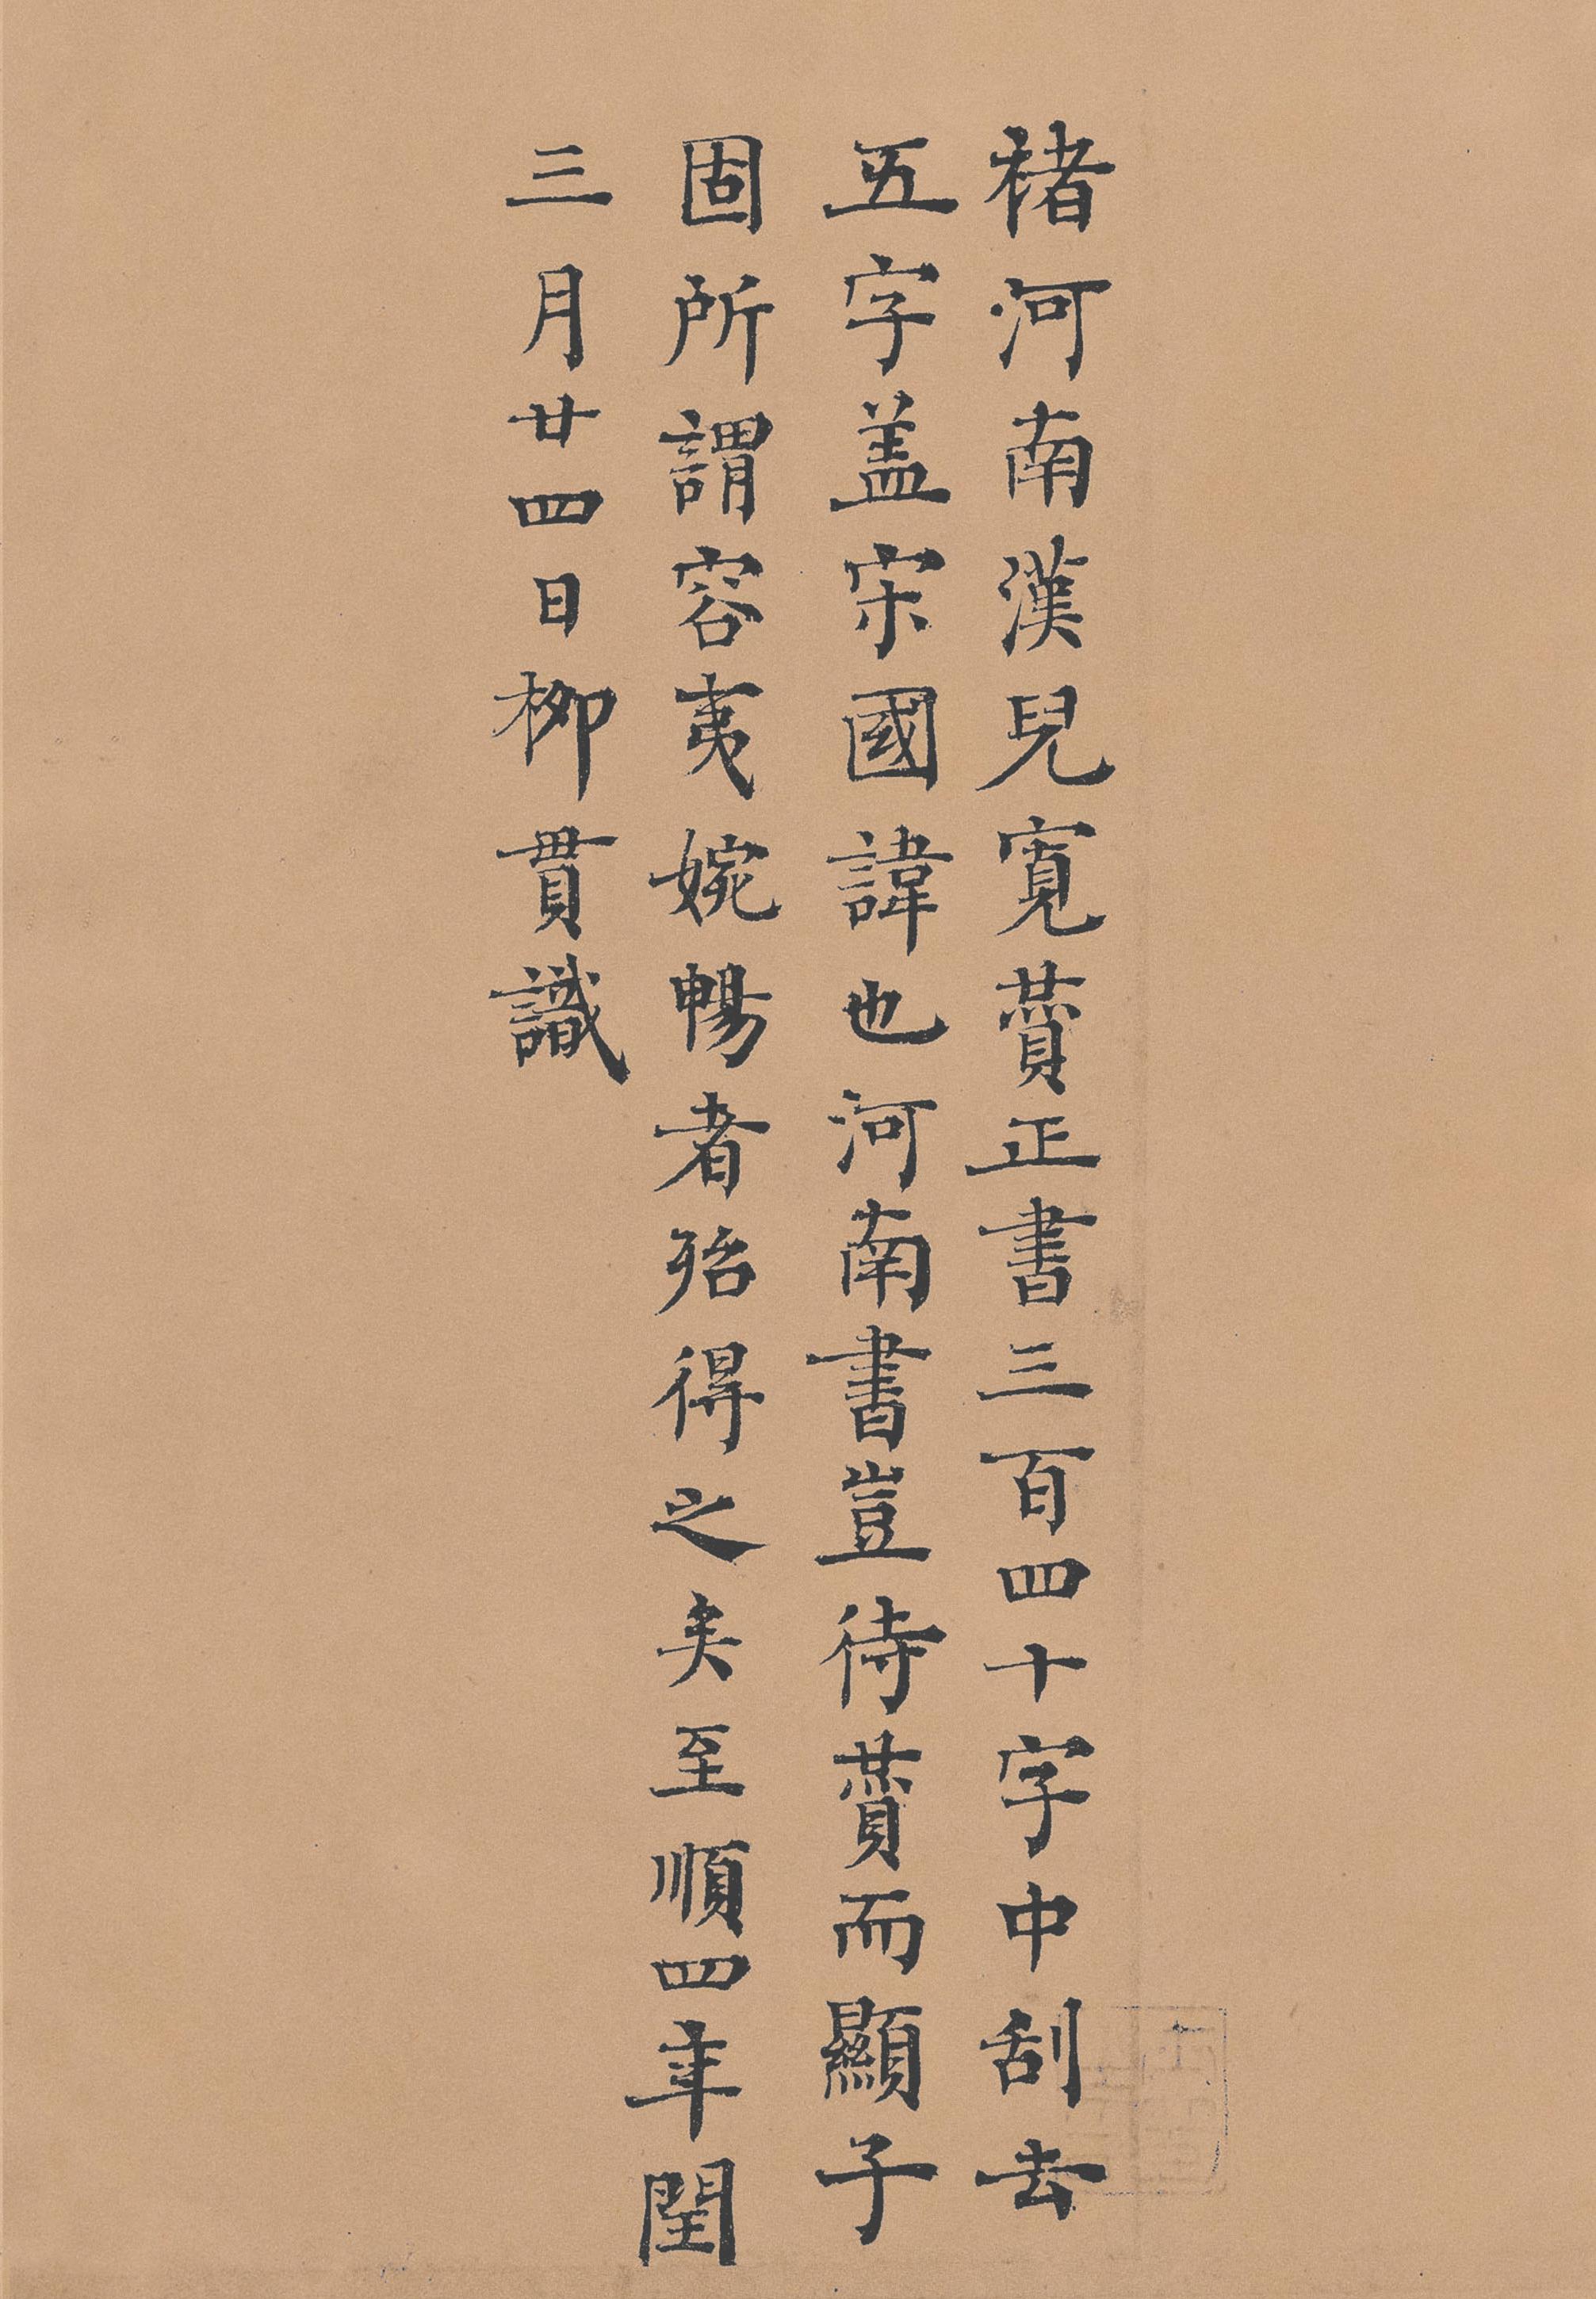 褚河南漢兒寛賛正書三百四十字中刮去
五字盖宋國諱也河南書豈待賛而顯子
固所謂容夷婉暢者殆得之矣至順四年閏
三月廿四日柳貫識